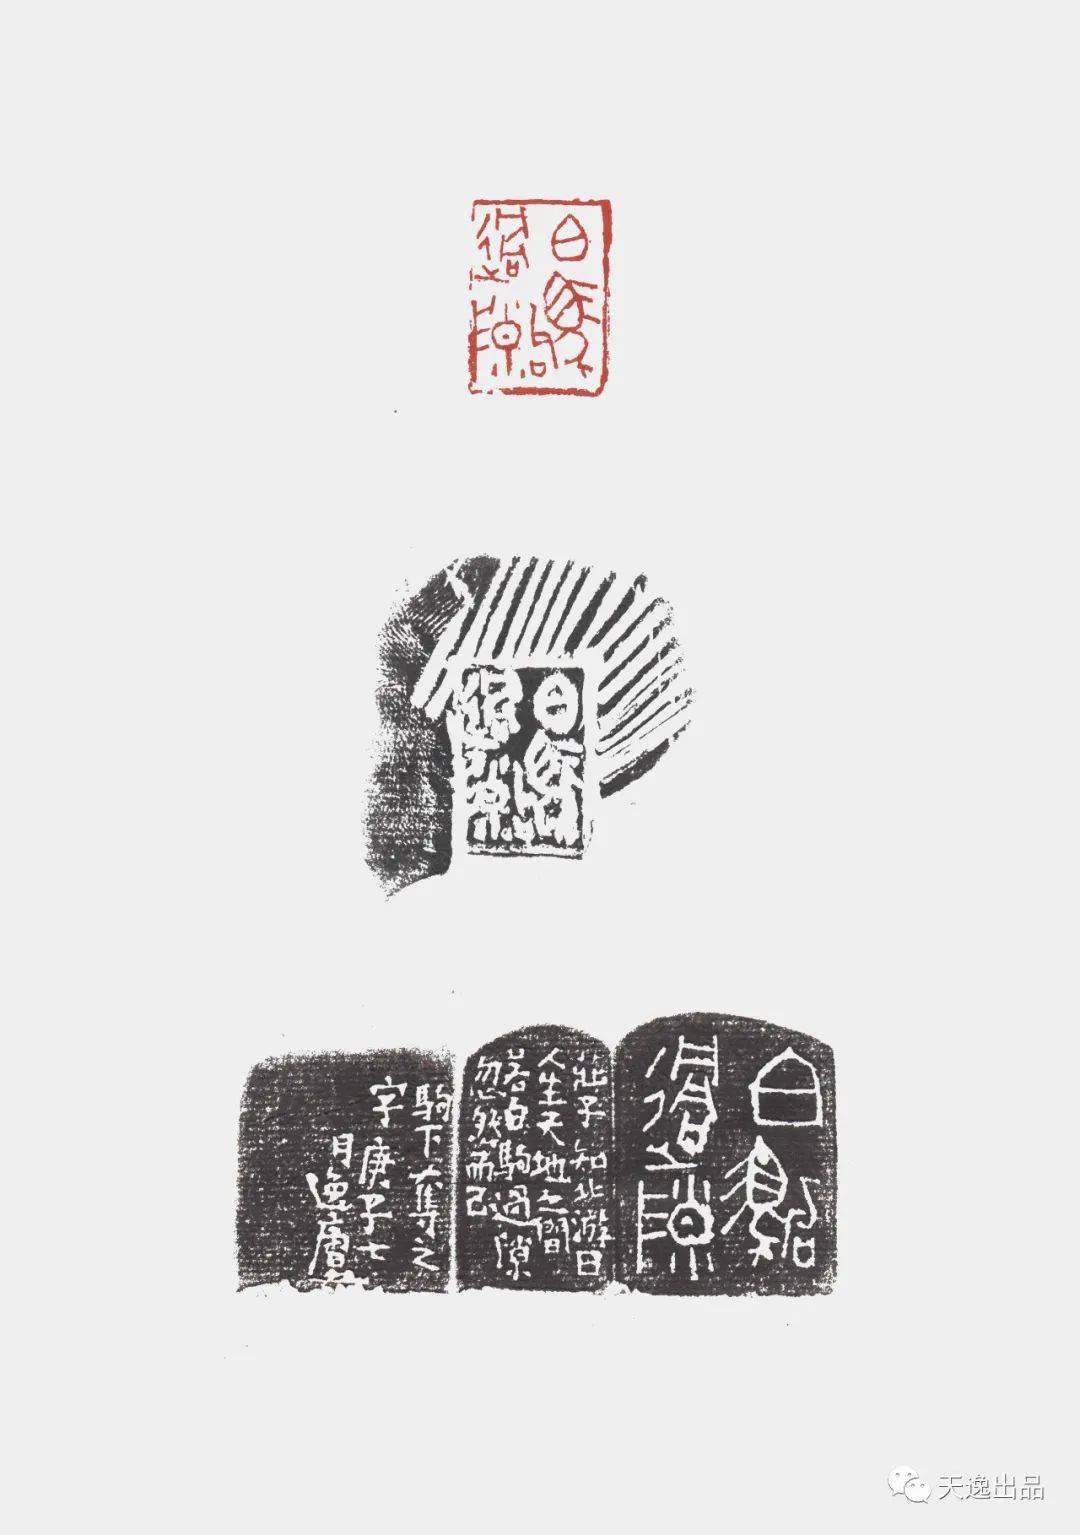 白駒
過隙
白駒
過隙
白駒
過隙
莊子知北游曰
人生天地之間
若白駒過隙
忽然而已
駒下奪之
字庚子七
月逸
天逸出品